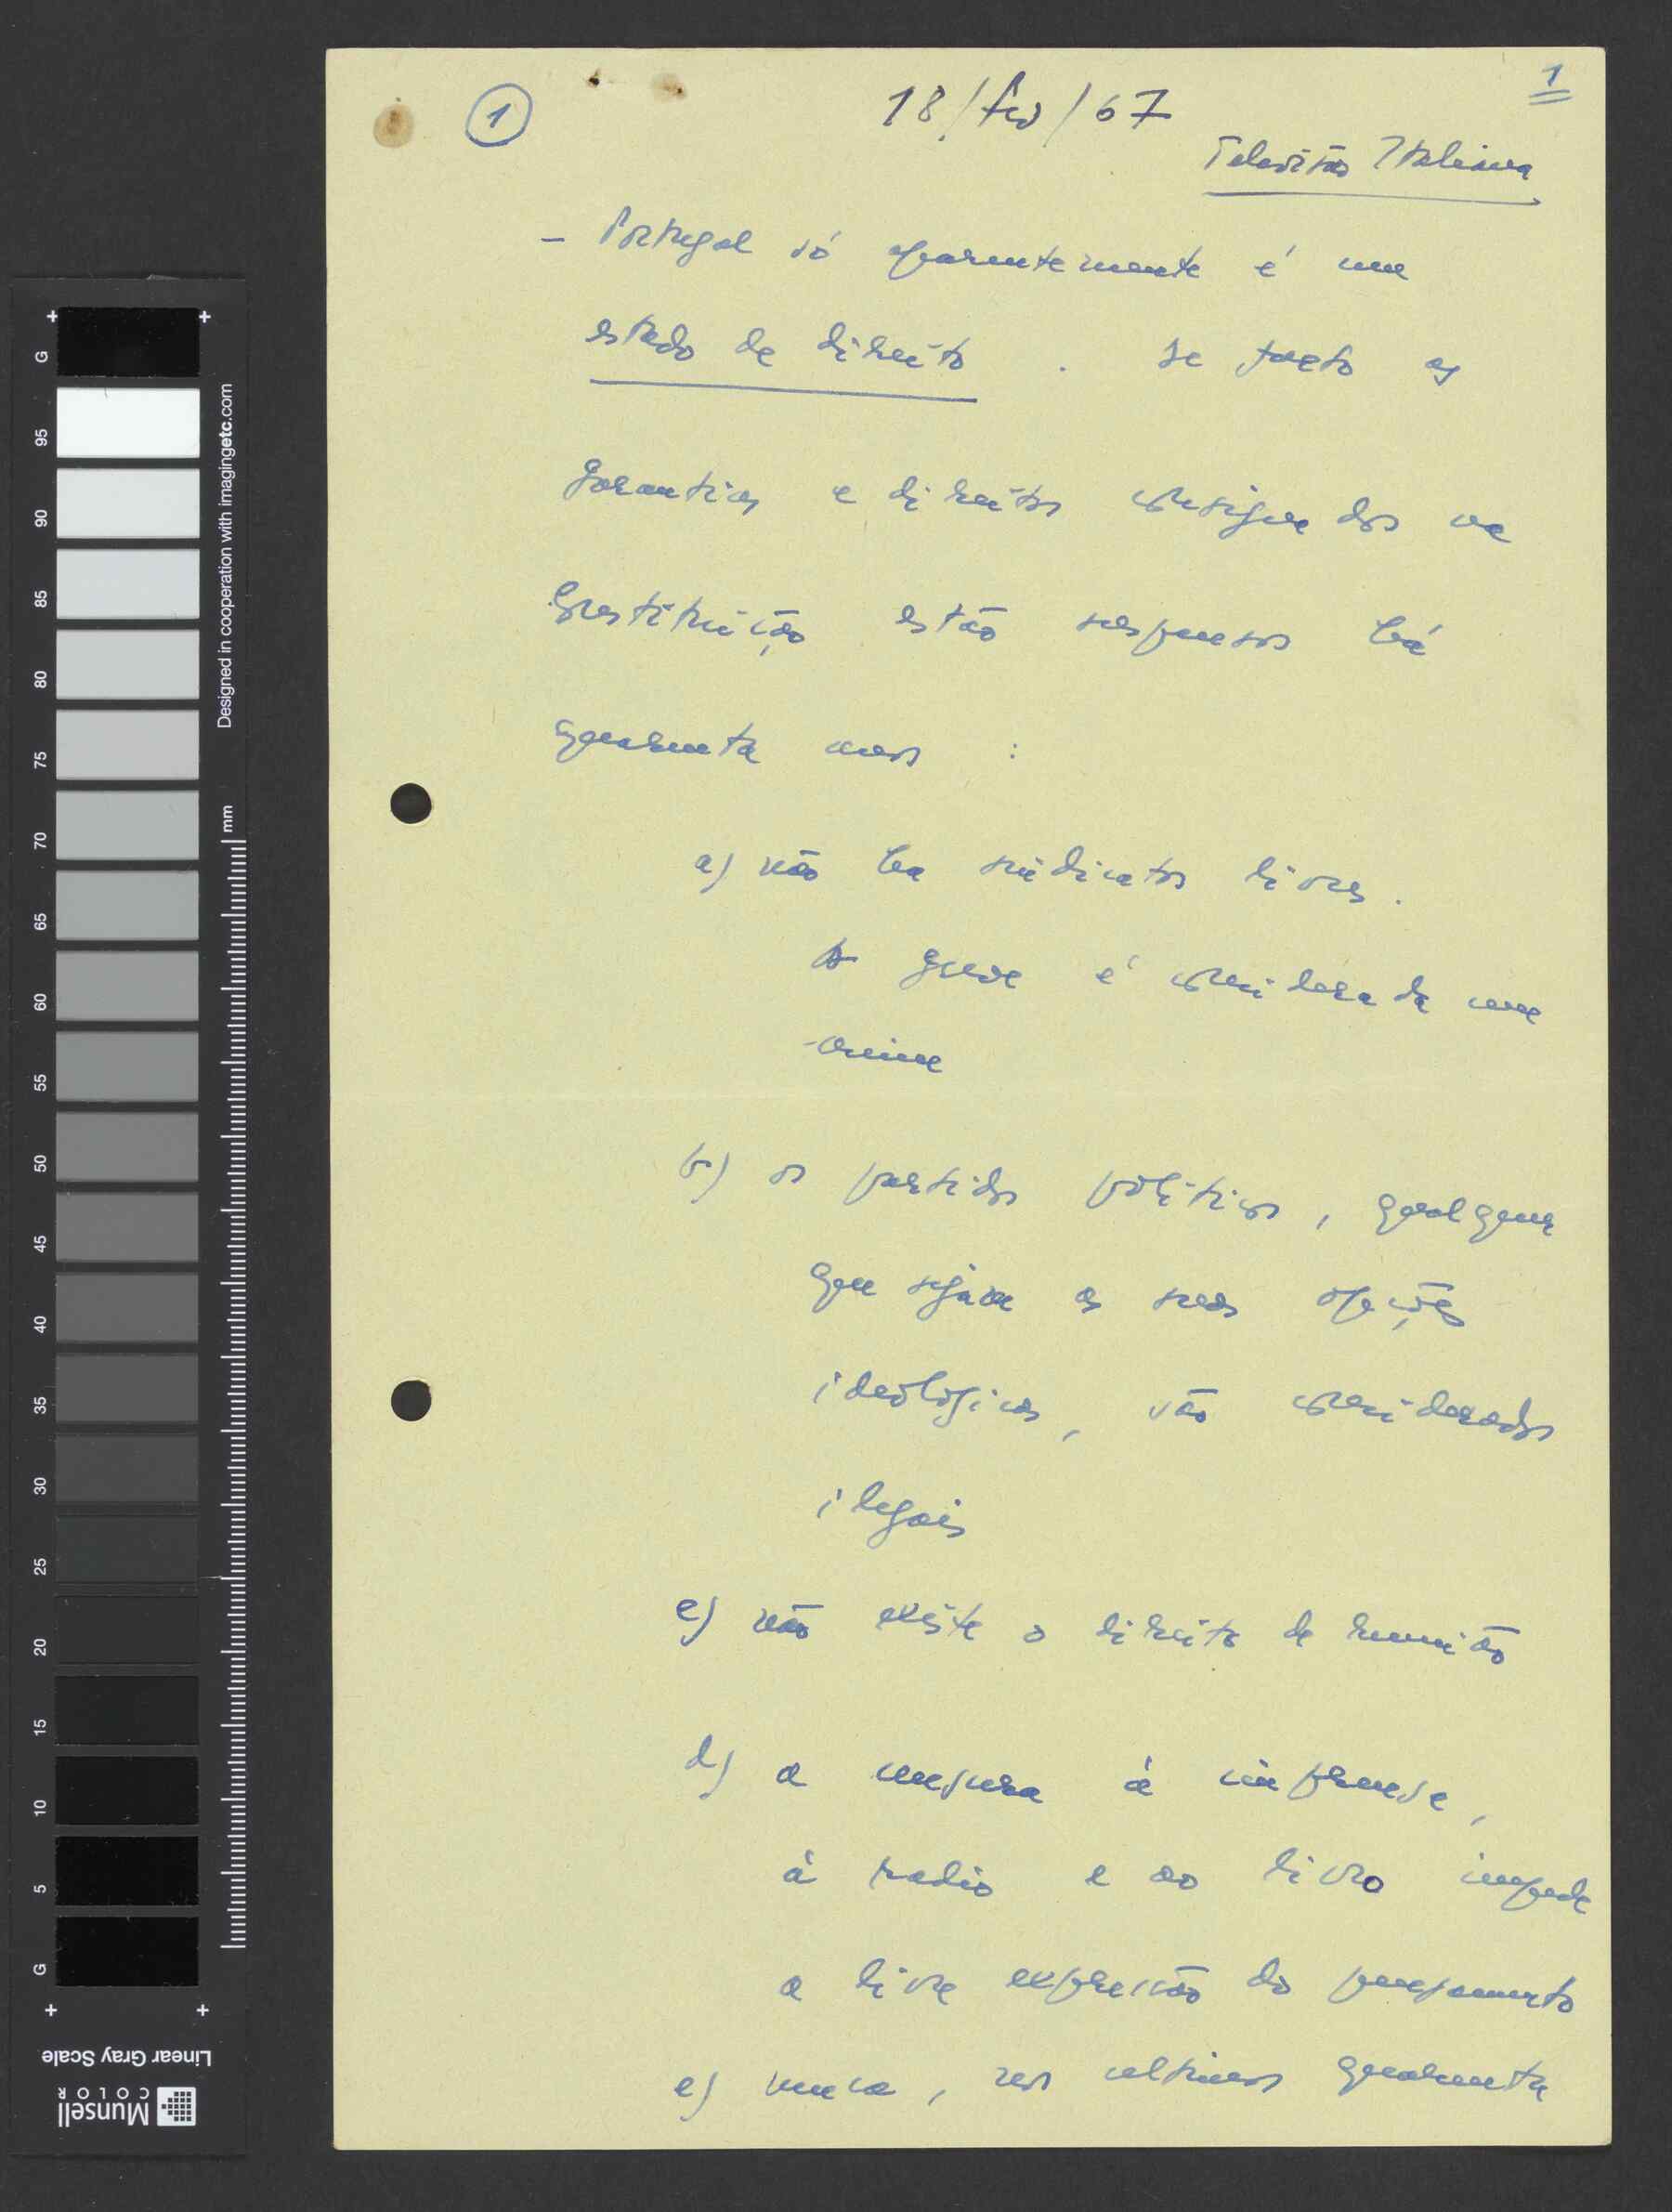 1
18/fev/67
1
Televisão Italiana
- Portugal só aparentemente é um
estado de direito. De facto as
garantias e direitos consignados na
Constituição estão suspensos há
quarenta anos :
a) não ha sindicatos livres.
A greve é considerada um
crime
b) os partidos politicos, qualquer
que sejam as suas opções
ideologicas, são considerados
ilegais
c) não existe o direito de reunião
d) a censura à imprensa,
à radio e ao livro impede
a livre expressão do pensamento
e) nunca, nos ultimos quarenta
G
95
90
85
80
75
70
65
60
55
50
45
40
35
30
25
20
15
10
5
G
Designed in cooperation with imagingetc.com
mm
Linear Gray Scale
Munsell
COLOR